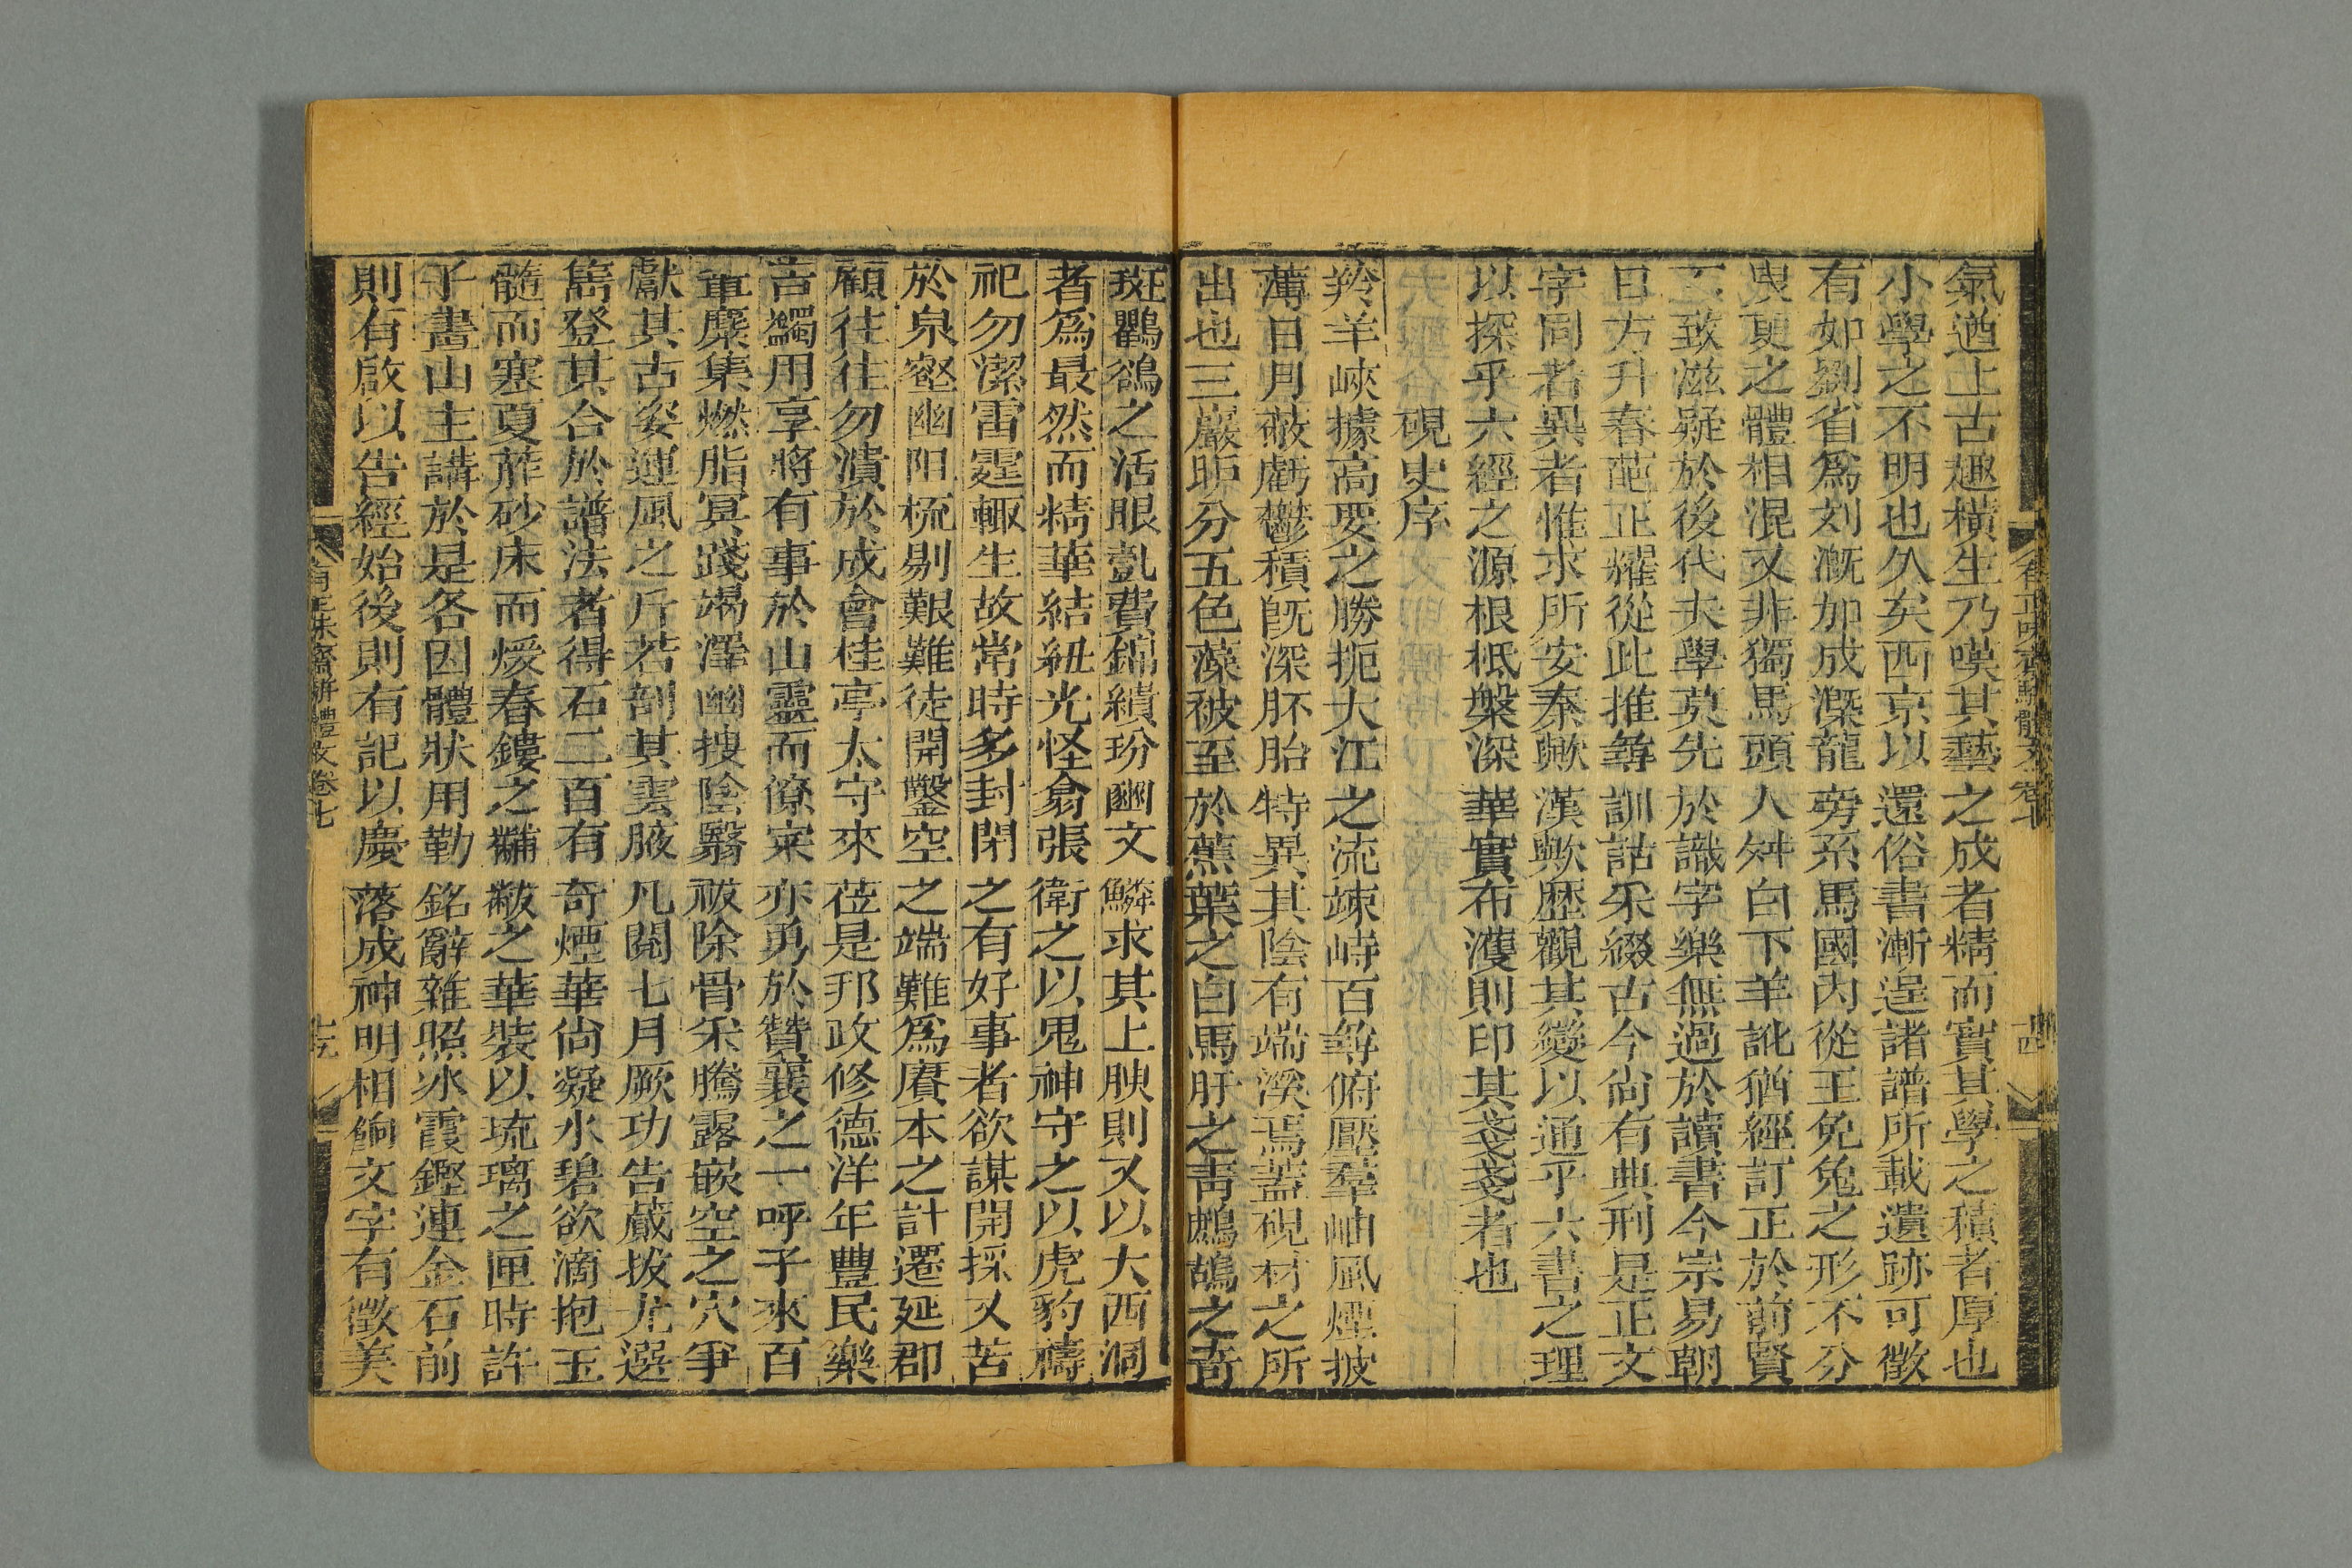 氣遒上古趣橫生乃嘆其藝之成者精而實其學之積者厚也
小學之不明也久矣西京以還俗書漸逞諸譜所載遺跡可徵
有如劉省爲刘漑加成㵣龍旁系馬國內從王免兔之形不分
臾更之體相混又非獨馬頭人舛白下羊訛猶經訂正於前賢
致滋疑於後代夫學莫先於識字樂無過於讀書今宗易朝
日方升春葩正耀從此推尋訓詁采綴古今尙有典刑是正文
字同者異者惟求所安秦歟漢歟歷觀其變以通乎六書之理
以探乎六經之源根柢槃深華實布濩則印其戔戔者也
硯史序
羚羊峽據高要之勝扼大江之流竦峙百尋俯壓羣岫風煙披
薄日月蔽虧鬱積旣深胚胎特異其陰有端溪焉蓋硯材之所
出也三巖昈分五色藻被至於蕉葉之白馬肝之靑鷓鴣之奇
斑鸜鵒之活眼㲉費錦繢玢豳文鱗求其上腴則又以大西洞
者爲最然而精華結紐光怪翕張衛之以鬼神守之以虎豹禱
祀勿潔雷霆輙生故常時多封閉之有好事者欲謀開採又苦
於泉窔幽阻梳剔艱難徒開鑿空之端難爲賡本之計遷延郤
顧往往勿潰於成會桂亭太守來莅是邦政修德洋年豐民樂
吉蠲用享將有事於山靈而僚寀亦勇於贊襄之一呼子來百
䡅麇集燃脂冥踐竭澤幽搜陰翳祓除骨采騰露嵌空之穴爭
獻其古姿運風之斤若剖其雲腋凡閱七月厥功告蕆拔尤選
雋登其合於譜法者得石二百有奇煙華尙凝水碧欲滴抱玉
髓而塞夏荐砂床而煖春鏤之黼黻之華裝以琉璃之匣時許
子畫山主講於是各因體狀用勒銘辭雜照冰霞鏗連金石前
則有啟以告經始後則有記以慶落成神明相餉文字有徵美
有正味齋駢體文卷七